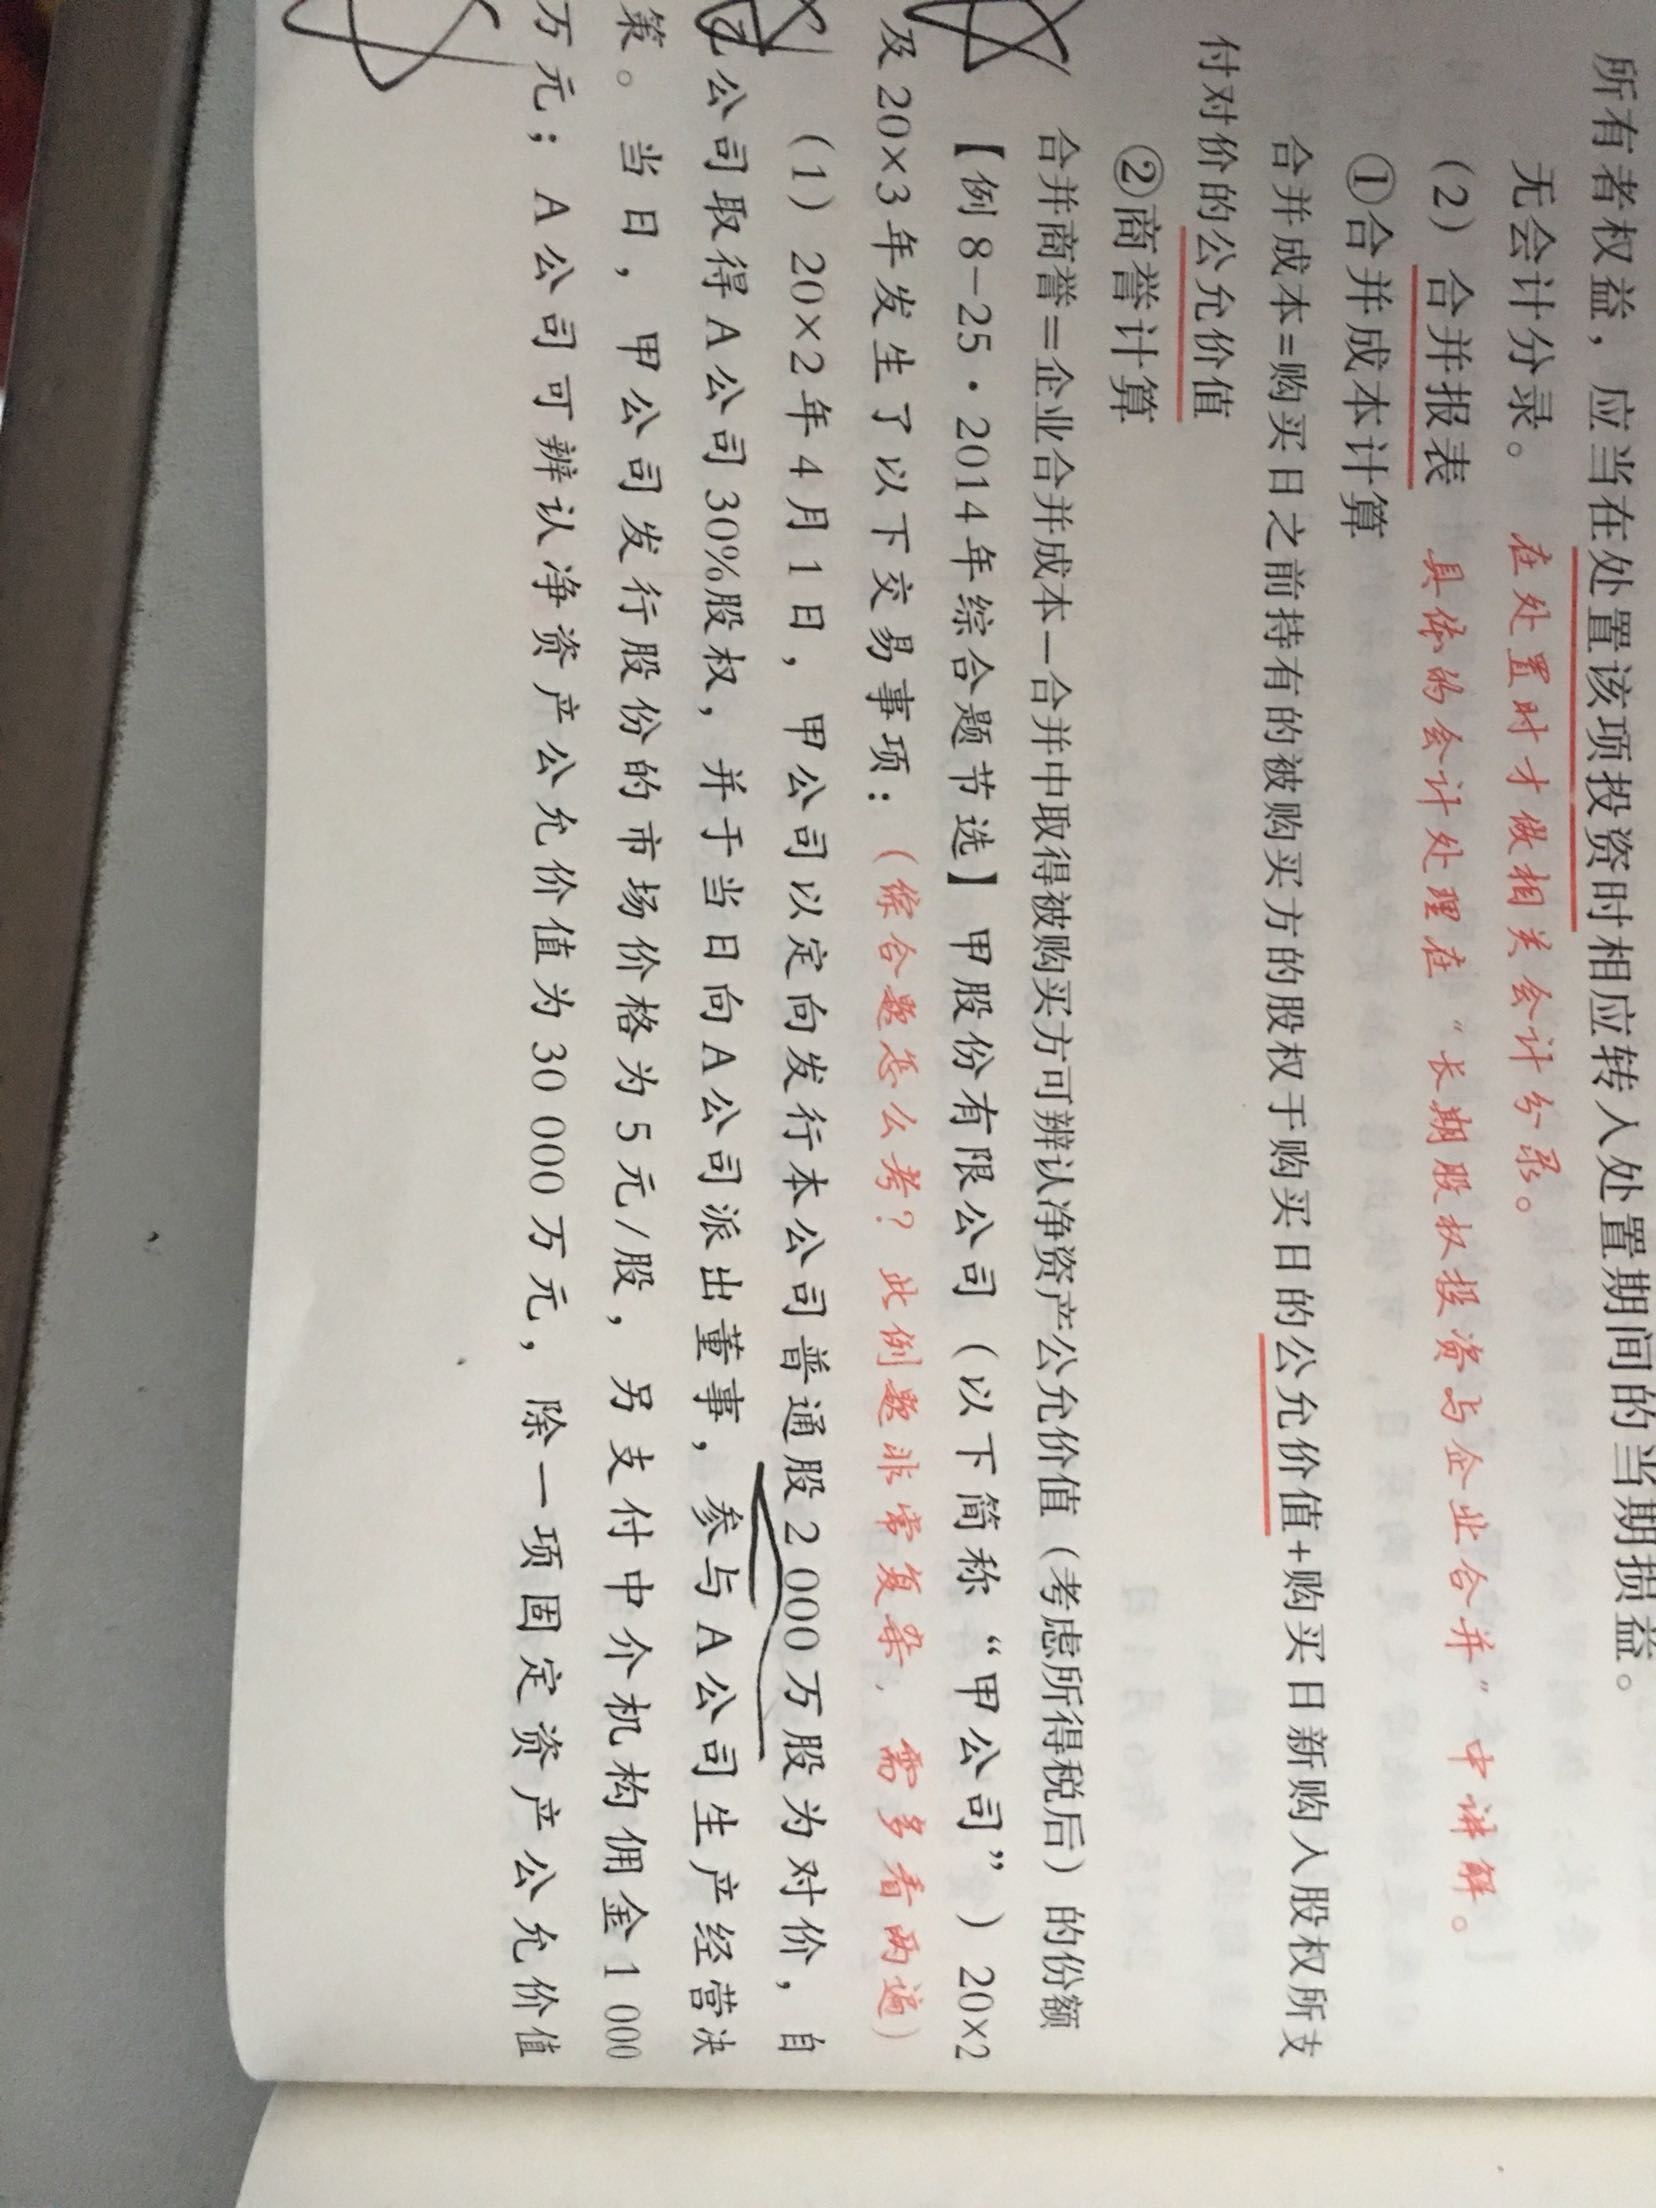 所有者权益，应当在处置该项投资时相应转入处置期间的当期损益。
无会计分录。 在处置时才做相关会计分录。
（2）合并报表 具体的会计处理在“长期股权投资与企业合并”中讲解。
①合并成本计算
合并成本=购买日之前持有的被购买方的股权于购买日的公允价值+购买日新购入股权所支
付对价的公允价值
②商誉计算
合并商誉=企业合并成本-合并中取得被购买方可辨认净资产公允价值（考虑所得税后）的份额
【例8-25·2014年综合题节选】甲股份有限公司（以下简称“甲公司”）20×2
及20×3年发生了以下交易事项：（综合题怎么考？此例题非常复杂，需多看两遍）
（1）20×2年4月1日，甲公司以定向发行本公司普通股2 000万股为对价，自
乙公司取得A公司30%股权，并于当日向A公司派出董事，参与A公司生产经营决
策。当日，甲公司发行股份的市场价格为5元/股，另支付中介机构佣金1 000
万元；A公司可辨认净资产公允价值为30 000万元，除一项固定资产公允价值